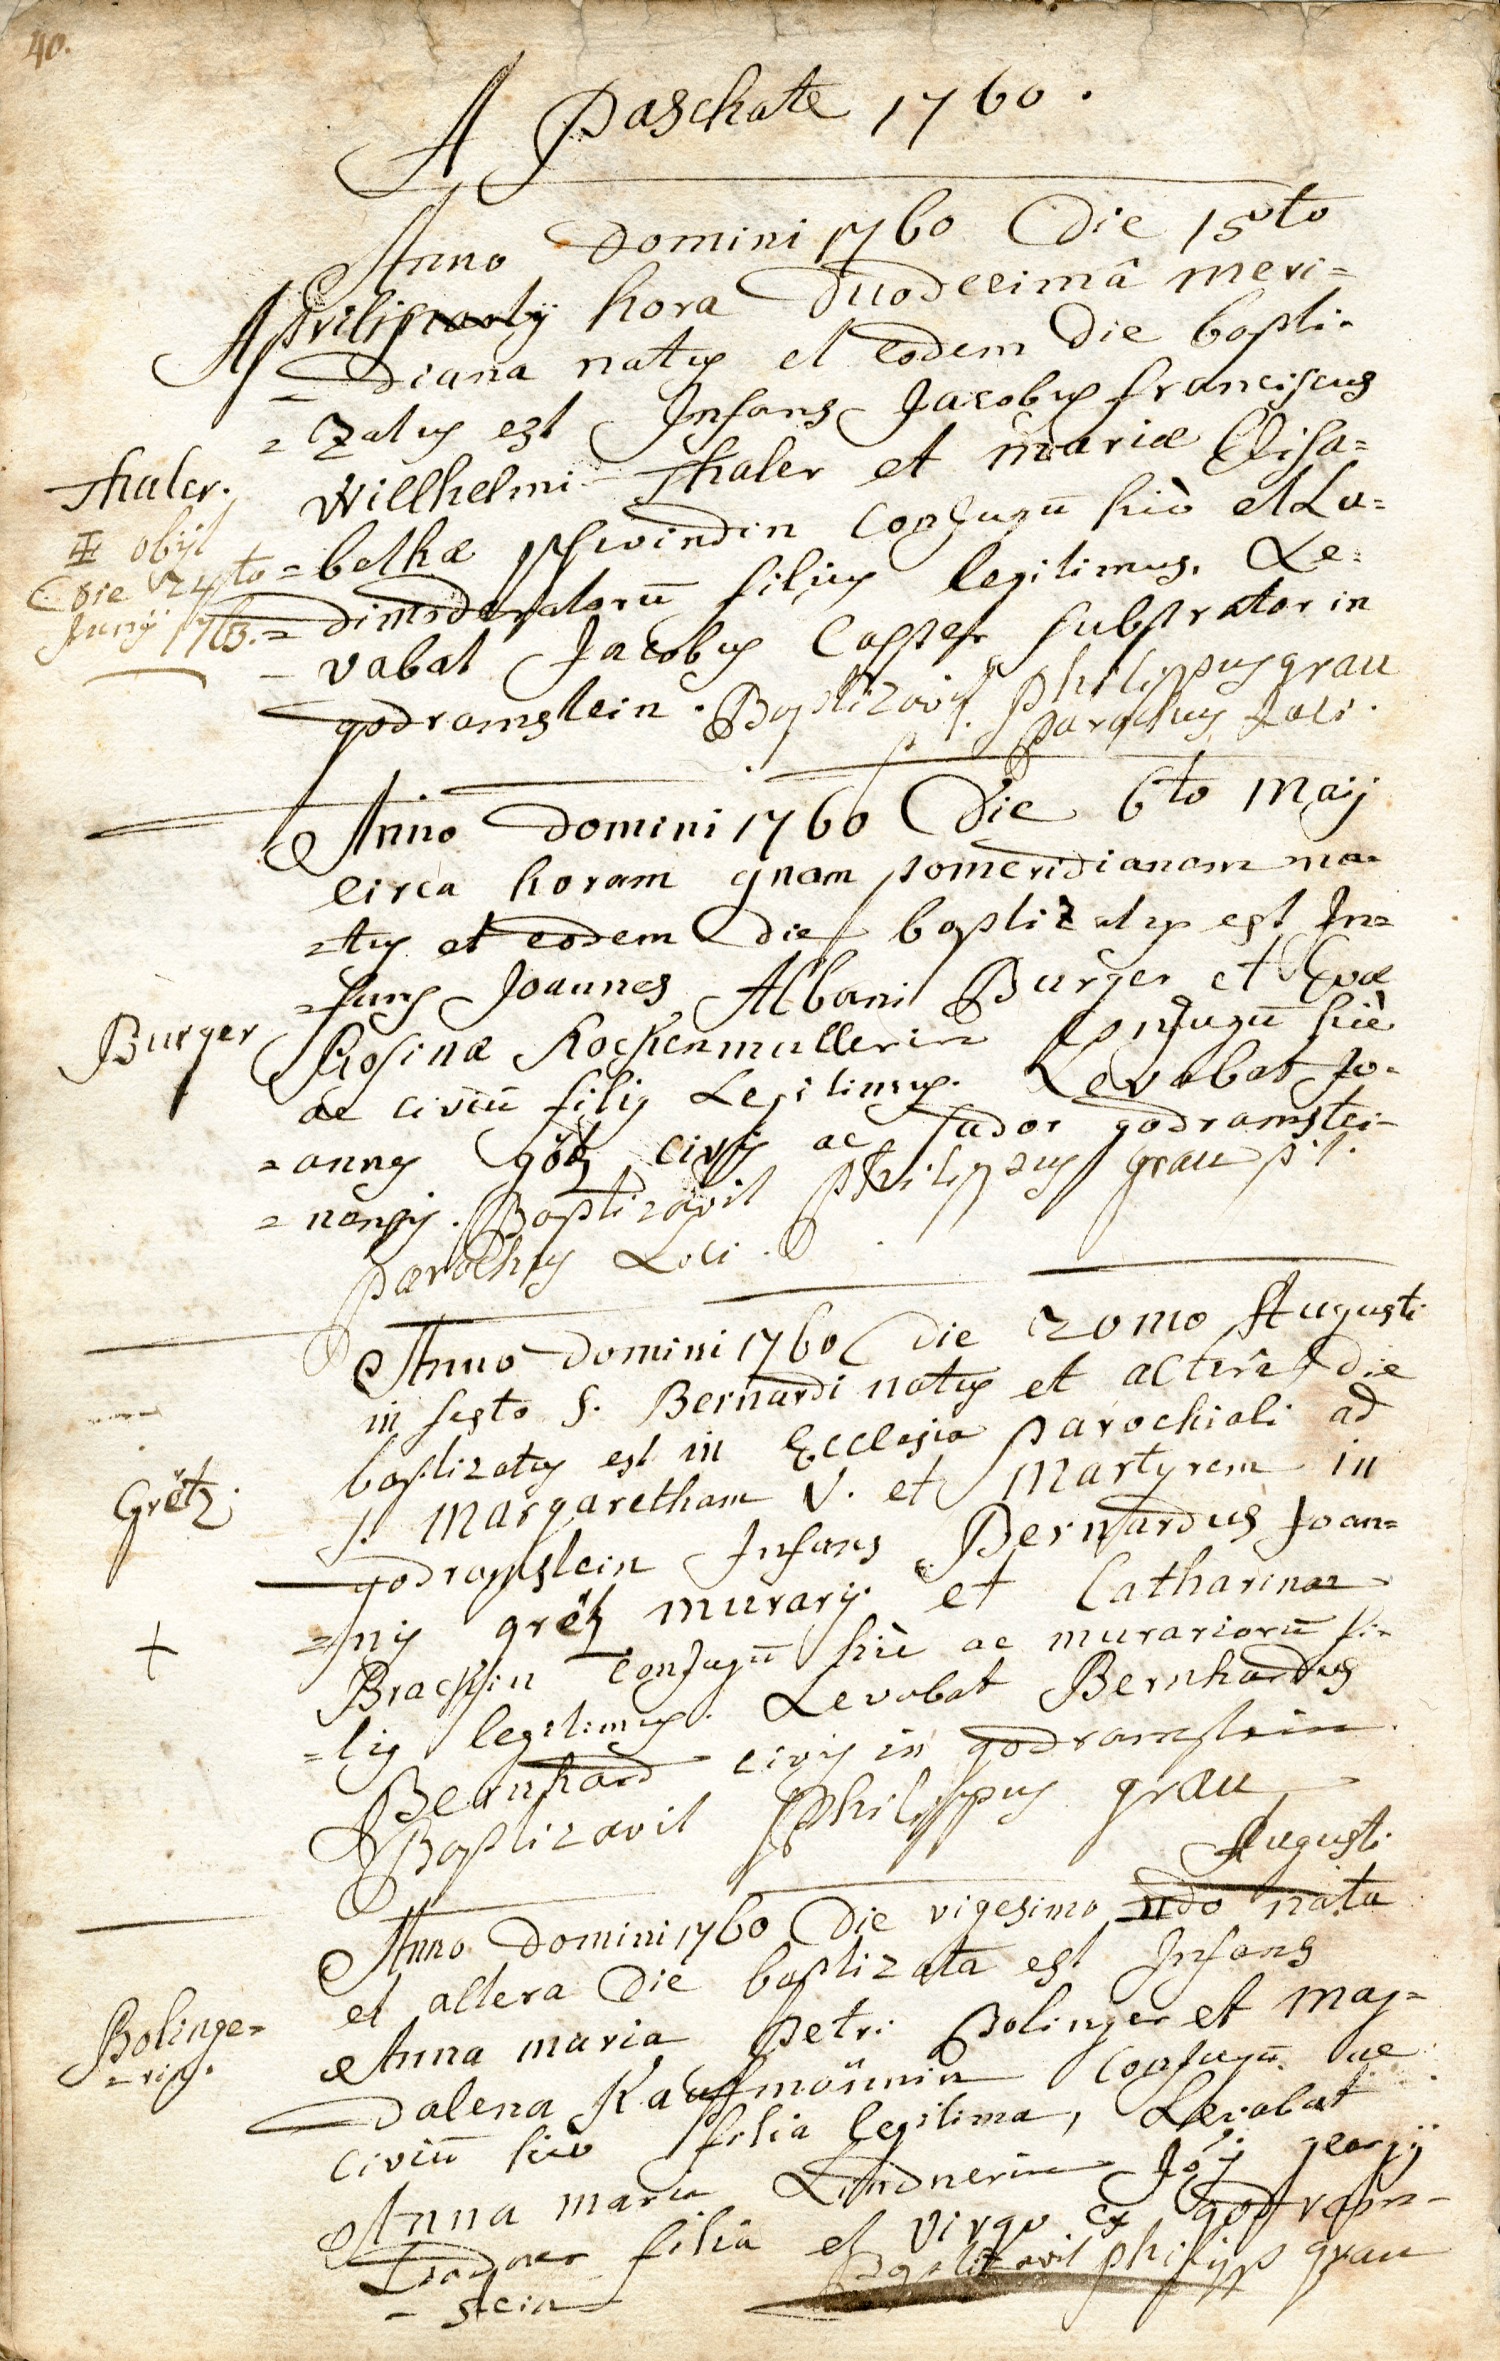 40.
A Paschate 1760.
Anno Domini 1760 Die 15to
Aprilis hora duodecimâ meri=
=diana natus et eodem Die bapti=
=zatus est Infans Jacobus franciscus
Willhelmi Thaler et mariæ Elisa=
=bethæ conjugū hic et Lu=
=dimoderatorū filius legitimus. Le=
=vabat Jacobus Casper substrator in
godramstein. Baptizavit Philippus grau
p.t. parochus Loci.
Thaler.
obijt
Die 24to
Junij 1763.
Anno Domini 1760 Die 6to Maij
circa horam pomeridianam na=
=tus et eodem die baptizatus est In=
=fans Joannes Albani Burger et Evæ
Rosinæ Kockenmullerin conjugū hic
ac civiū filius Legitimus. Levabat Jo=
=annes götz civis ac godramstei=
=nensis. Baptizavit Philippus grau p.t.
parochus Loci.
Burger
Anno Domini 1760 Die 20mo Augusti
in festo S. Bernardi natus et alterâ die
baptizatus est in Ecclesia parochiali ad
S. Margaretham V. et Martyrem in
godramstein Infans Bernardus Joan=
=nis grëtz murarij et Catharinæ
conjugū hic ac murariorū fi=
=lius legitimus. Levabat Bernhardus
Bernhard civis in godramstein.
Baptizavit Philippus grau
Grëtz.
Augusti
Anno Domini 1760 Die vigesimo 2do nata
et altera Die baptizata est Infans
Anna maria Petri Bolinger et mag=
=dalena Kauffmännin conjugū ac
civiū hic filia legitima, Levabat
Anna maria Lindnerin Jois georgij
Lindner filia et virgo ex godram=
=stein Baptizavit philipp grau
Bolinge=
=rin.